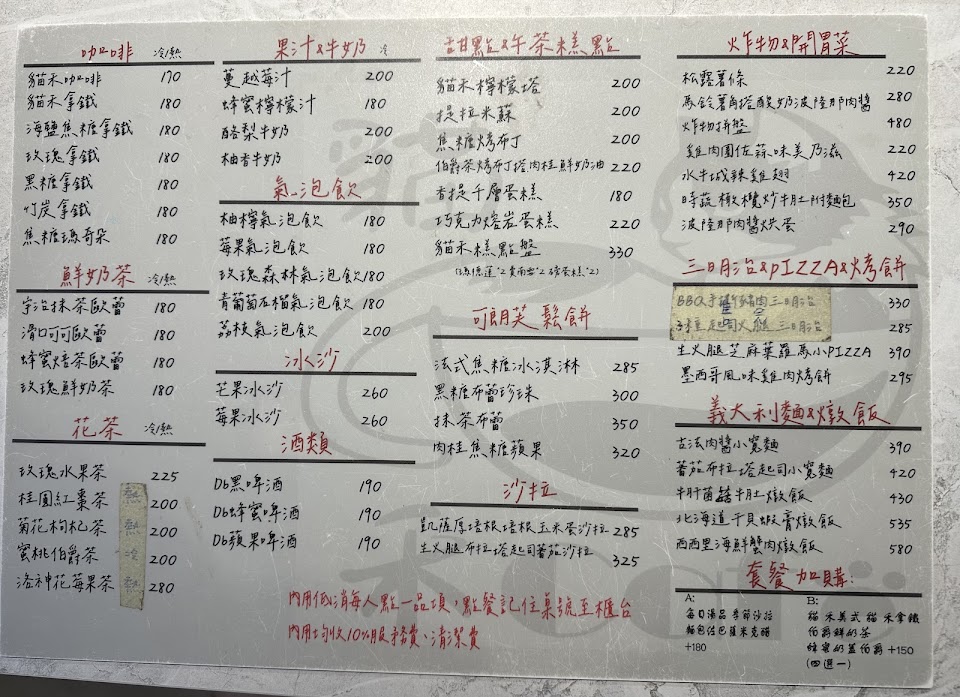 咖啡 冷/熱
貓禾咖啡 170
貓禾拿鐵 180
海鹽焦糖拿鐵 180
玫瑰拿鐵 180
黑糖拿鐵 180
竹炭拿鐵 180
焦糖瑪奇朵 180
鮮奶茶 冷/熱
宇治抹茶歐蕾 180
滑口可可歐蕾 180
蜂蜜焙茶歐蕾 180
玫瑰鮮奶茶 180
花茶 冷/熱
玫瑰水果茶 225
桂圓紅棗茶 熱 200
菊花枸杞茶 熱 200
蜜桃伯爵茶 冷 200
洛神花莓果茶 熱 280
果汁&牛奶 冷
蔓越莓汁 200
蜂蜜檸檬汁 180
酪梨牛奶 200
柚香牛奶 200
氣泡飲
柚檸氣泡飲 180
莓果氣泡飲 180
玫瑰森林氣泡飲 180
青葡萄石榴氣泡飲 180
荔枝氣泡飲 200
冰沙
芒果冰沙 260
莓果冰沙 260
酒類
Db黑啤酒 190
Db蜂蜜啤酒 190
Db蘋果啤酒 190
甜點&午茶糕點
貓禾檸檬塔 200
提拉米蘇 200
焦糖烤布丁 200
伯爵茶烤布丁塔肉桂鮮奶油 220
香提千層蛋糕 180
巧克力熔岩蛋糕 220
貓禾糕點盤 330
可朗芙鬆餅
法式焦糖冰淇淋 285
黑糖布蕾珍珠 300
抹茶布蕾 350
肉桂焦糖蘋果 320
沙拉
凱薩厚培根培根玉米蛋沙拉 285
生火腿布拉塔起司蕃茄沙拉 325
炸物&開胃菜
松露薯條 220
馬鈴薯角塔酸奶波隆那肉醬 280
炸物拼盤 480
雞肉團佐蒜味美乃滋 220
水牛城辣雞翅 420
時蔬橄欖炒牛肚附麵包 350
波隆那肉醬烘蛋 290
三明治&PIZZA&烤餅
BBQ手撕豬肉三明治 330
3種起司火腿三明治 285
生火腿芝麻葉羅馬小PIZZA 390
墨西哥風味雞肉烤餅 295
義大利麵&燉飯
古法肉醬小寬麵 390
蕃茄布拉塔起司小寬麵 420
牛肝菌菇牛肚燉飯 430
北海道干貝蝦膏燉飯 535
西西里海鮮蟹肉燉飯 580
套餐加購:
A:
每日湯品 季節沙拉
麵包佐巴薩米克醋
+180
B:
貓禾美式 貓禾拿鐵
伯爵鮮奶茶
蜂蜜奶蓋伯爵 +150
(四選一)
內用低消每人點一品項，點餐記住桌號至櫃台
內用均收10%服務費、清潔費